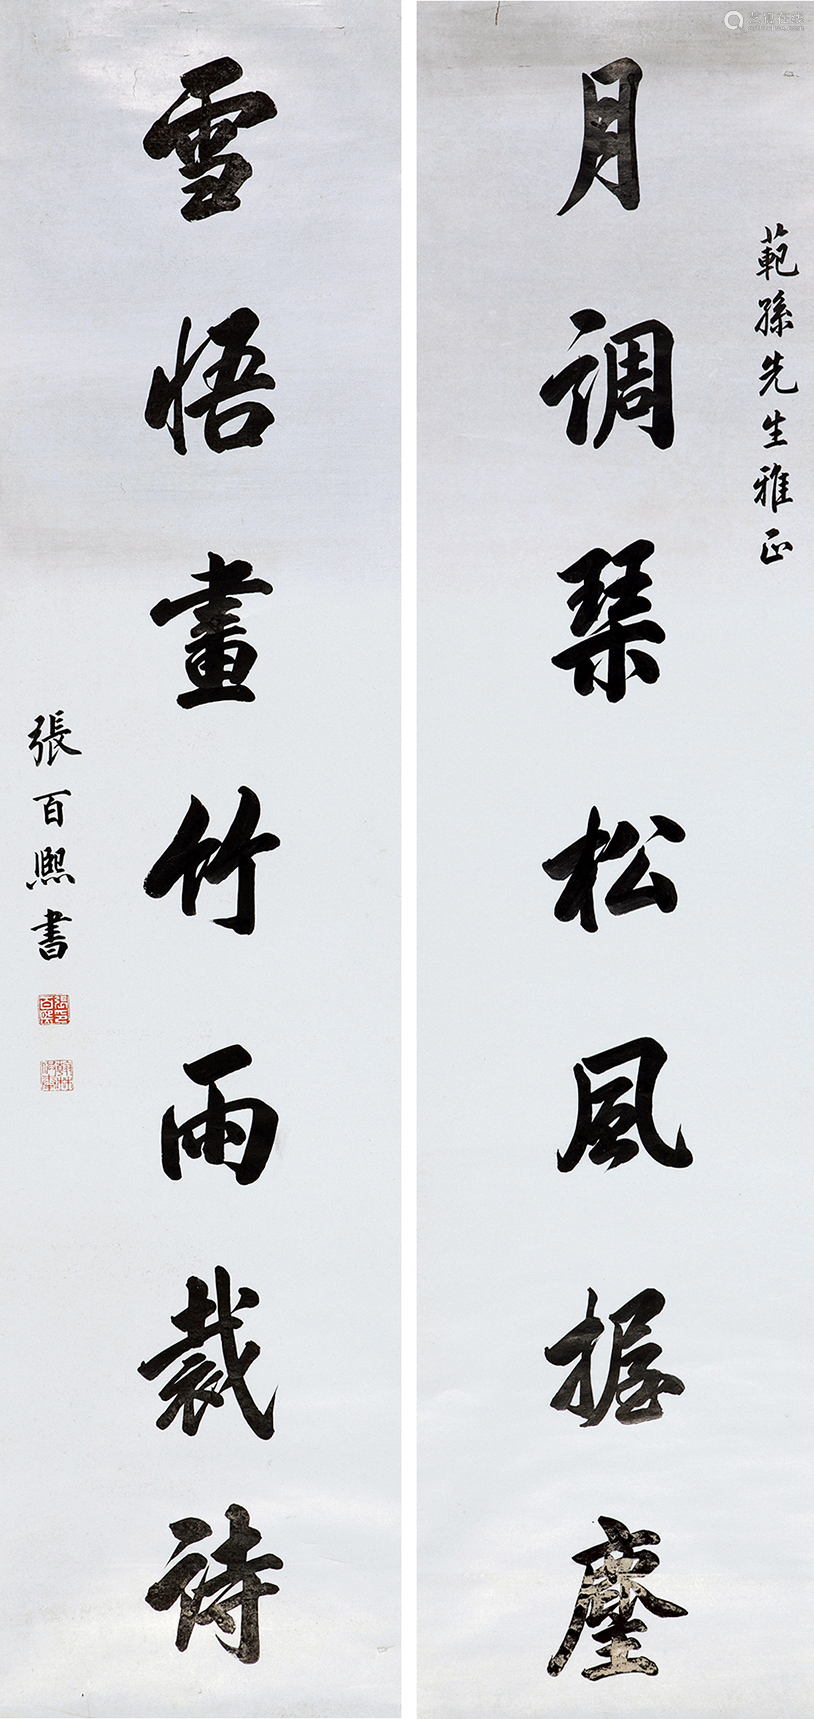 範孫先生雅正
月調琹松風握麈
雪悟畫竹雨裁詩
張百熙書